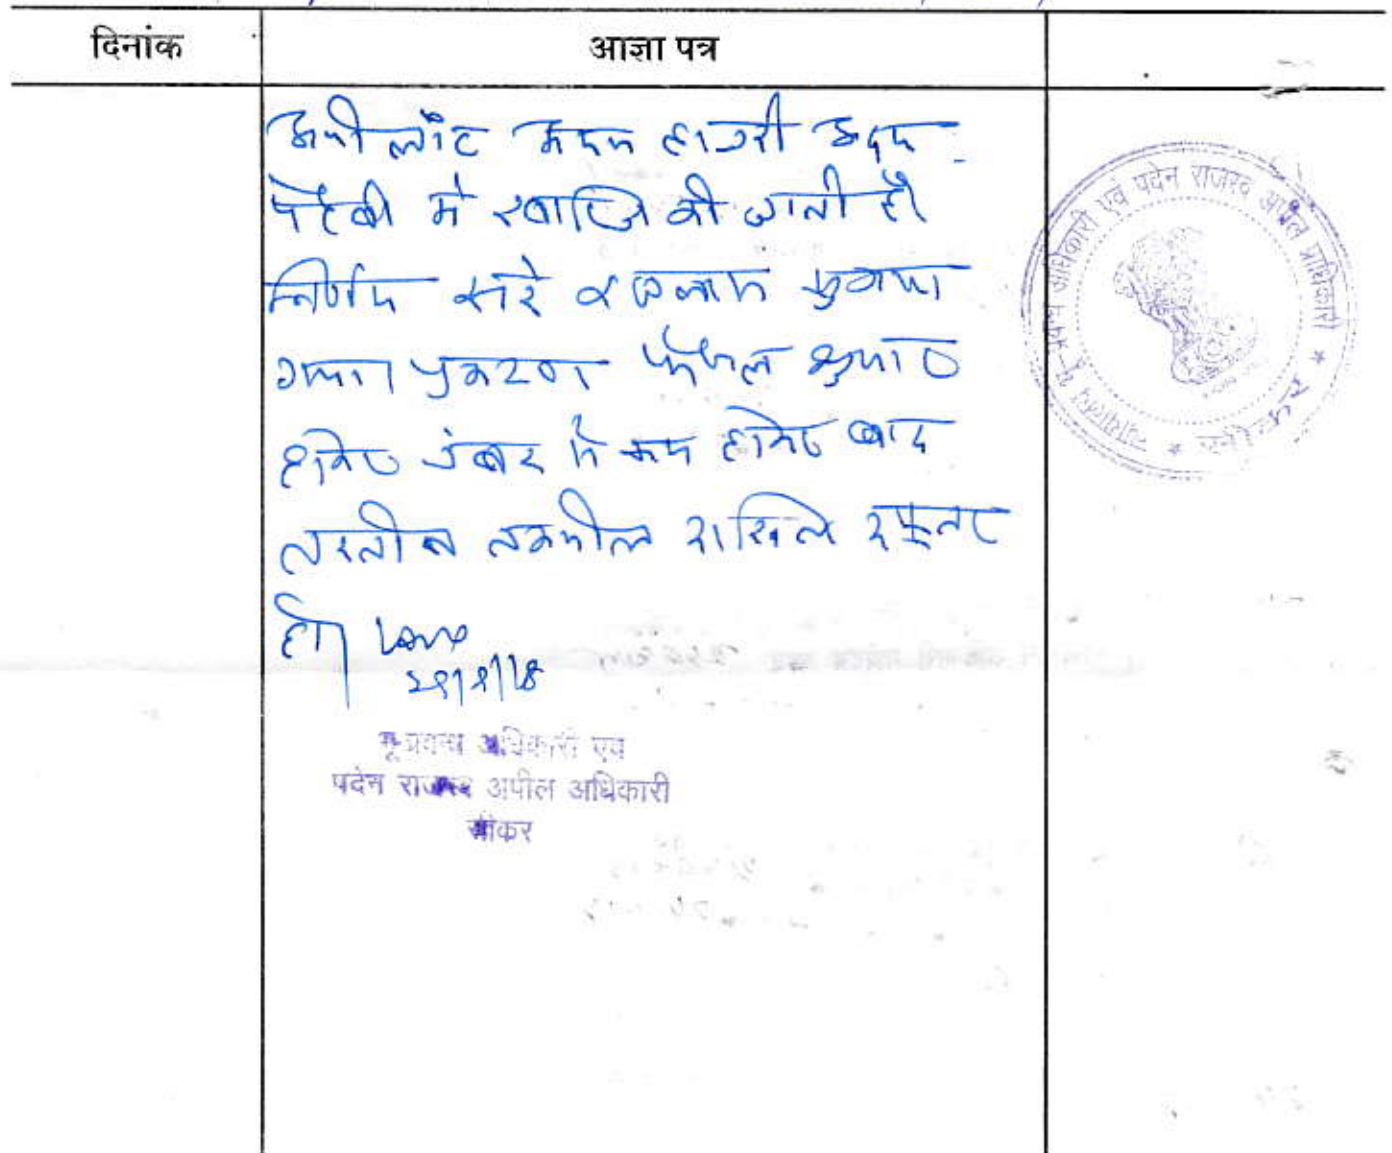 दिनांक
आज्ञा पत्र
अपीलांट अदम हाजरी अदम
पैरवी में खारिज की जाती है
निर्णय सरे इजलास सुनाया
गया। प्रकरण फैसल शुमार
होकर नंबर से कम होकर बाद
तरतीब तकमील दाखिल दफ्तर
हो।
भू प्रबन्ध अधिकारी एवं
पदेन राजस्व अपील अधिकारी
सीकर
न्यायालय भू प्रबन्ध अधिकारी एवं पदेन राजस्व अपील प्राधिकारी